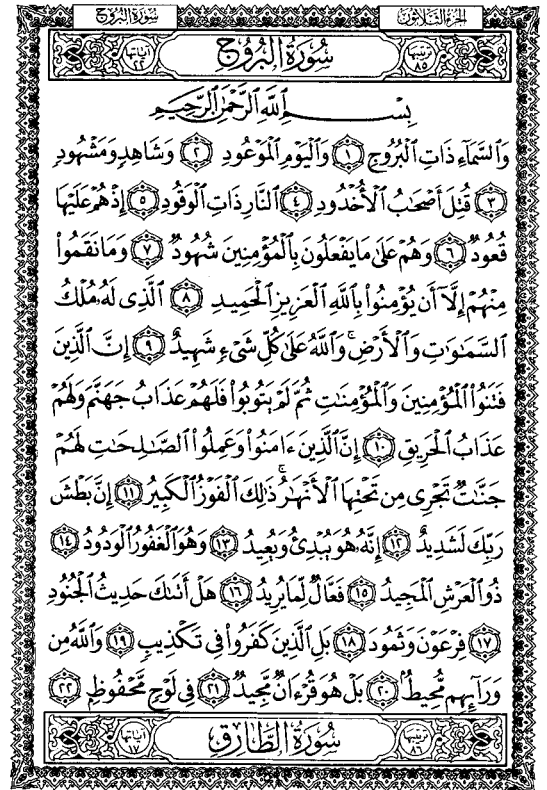 الجزء الثلاثون سورة البروج
ترتيبها ٨٥ سُورَةُ الْبُرُوجِ آياتها ٢٢
بِسْمِ ٱللَّهِ ٱلرَّحْمَٰنِ ٱلرَّحِيمِ
وَٱلسَّمَآءِ ذَاتِ ٱلْبُرُوجِ ١ وَٱلْيَوْمِ ٱلْمَوْعُودِ ٢ وَشَاهِدٍ وَمَشْهُودٍ
٣ قُتِلَ أَصْحَٰبُ ٱلْأُخْدُودِ ٤ ٱلنَّارِ ذَاتِ ٱلْوَقُودِ ٥ إِذْ هُمْ عَلَيْهَا
قُعُودٌ ٦ وَهُمْ عَلَىٰ مَا يَفْعَلُونَ بِٱلْمُؤْمِنِينَ شُهُودٌ ٧ وَمَا نَقَمُوا۟
مِنْهُمْ إِلَّآ أَن يُؤْمِنُوا۟ بِٱللَّهِ ٱلْعَزِيزِ ٱلْحَمِيدِ ٨ ٱلَّذِى لَهُۥ مُلْكُ
ٱلسَّمَٰوَٰتِ وَٱلْأَرْضِ ۚ وَٱللَّهُ عَلَىٰ كُلِّ شَىْءٍ شَهِيدٌ ٩ إِنَّ ٱلَّذِينَ
فَتَنُوا۟ ٱلْمُؤْمِنِينَ وَٱلْمُؤْمِنَٰتِ ثُمَّ لَمْ يَتُوبُوا۟ فَلَهُمْ عَذَابُ جَهَنَّمَ وَلَهُمْ
عَذَابُ ٱلْحَرِيقِ ١٠ إِنَّ ٱلَّذِينَ ءَامَنُوا۟ وَعَمِلُوا۟ ٱلصَّٰلِحَٰتِ لَهُمْ
جَنَّٰتٌ تَجْرِى مِن تَحْتِهَا ٱلْأَنْهَٰرُ ۚ ذَٰلِكَ ٱلْفَوْزُ ٱلْكَبِيرُ ١١ إِنَّ بَطْشَ
رَبِّكَ لَشَدِيدٌ ١٢ إِنَّهُۥ هُوَ يُبْدِئُ وَيُعِيدُ ١٣ وَهُوَ ٱلْغَفُورُ ٱلْوَدُودُ ١٤
ذُو ٱلْعَرْشِ ٱلْمَجِيدُ ١٥ فَعَّالٌ لِّمَا يُرِيدُ ١٦ هَلْ أَتَىٰكَ حَدِيثُ ٱلْجُنُودِ
١٧ فِرْعَوْنَ وَثَمُودَ ١٨ بَلِ ٱلَّذِينَ كَفَرُوا۟ فِى تَكْذِيبٍ ١٩ وَٱللَّهُ مِن
وَرَآئِهِم مُّحِيطٌۢ ٢٠ بَلْ هُوَ قُرْءَانٌ مَّجِيدٌ ٢١ فِى لَوْحٍ مَّحْفُوظٍۭ ٢٢
ترتيبها ٨٦ سُورَةُ الطَّارِقِ آياتها ١٧